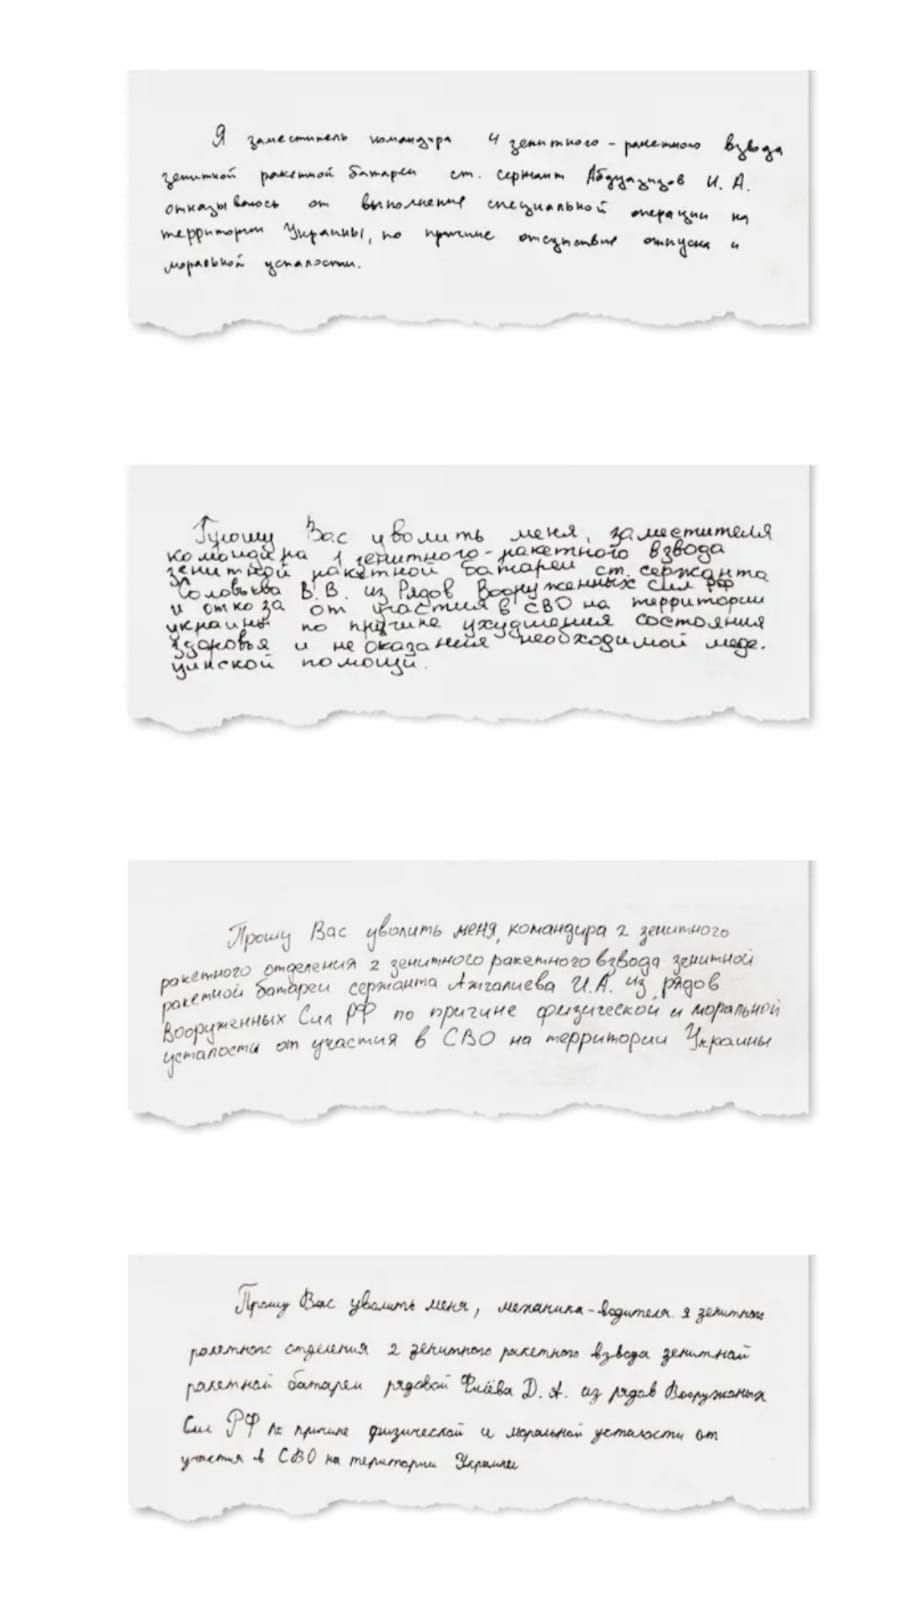 Я заместитель командира 4 зенитного-ракетного взвода
зенитной ракетной батареи ст. сержант Абдулазизов И. А.
отказываюсь от выполнение специальной операции на
территории Украины, по причине отсутствие отпуска и
моральной усталости.
Прошу Вас уволить меня, заместителя
командира 1 зенитного-ракетного взвода
зенитной ракетной батареи ст. сержанта
Соловьева В.В. из Рядов Вооруженных Сил РФ
и отказа от участия в СВО на территории
украины по причине ухудшения состояния
здоровья и не оказания необходимой меди.
цинской помощи.
Прошу Вас уволить меня, командира 2 зенитного
ракетного отделения 2 зенитного ракетного взвода зенитной
ракетной батареи сержанта Ажгалиева И.А. из рядов
Вооруженных Сил РФ по причине физической и моральной
усталости от участия в СВО на территории Украины
Прошу Вас уволить меня, механика-водителя зенитного
ракетного отделения 2 зенитного ракетного взвода зенитной
ракетной батареи рядовой Д. А. из рядов Вооружоных
Сил РФ по причине физической и моральной усталости от
участия в СВО на територии Украины